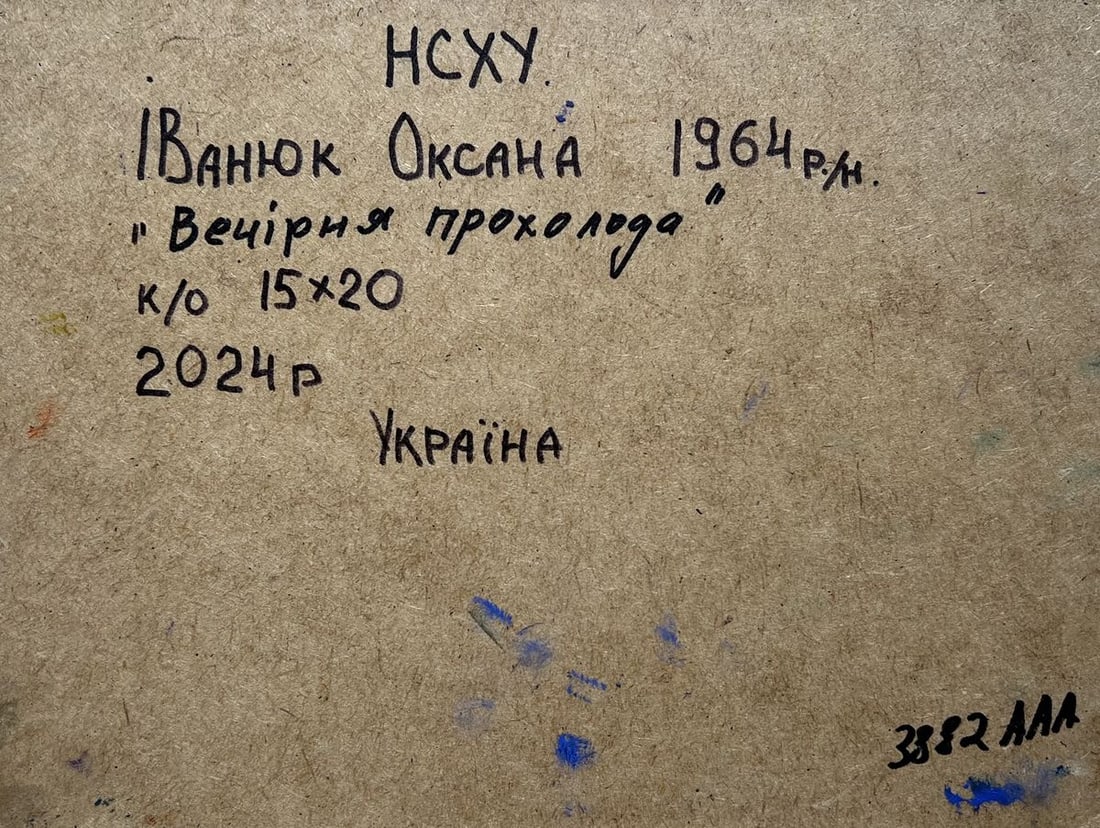 НСХУ.
Іванюк Оксана 1964 р/н.
"Вечірня прохолода"
к/о 15х20
2024 р
Україна
3882 ААА